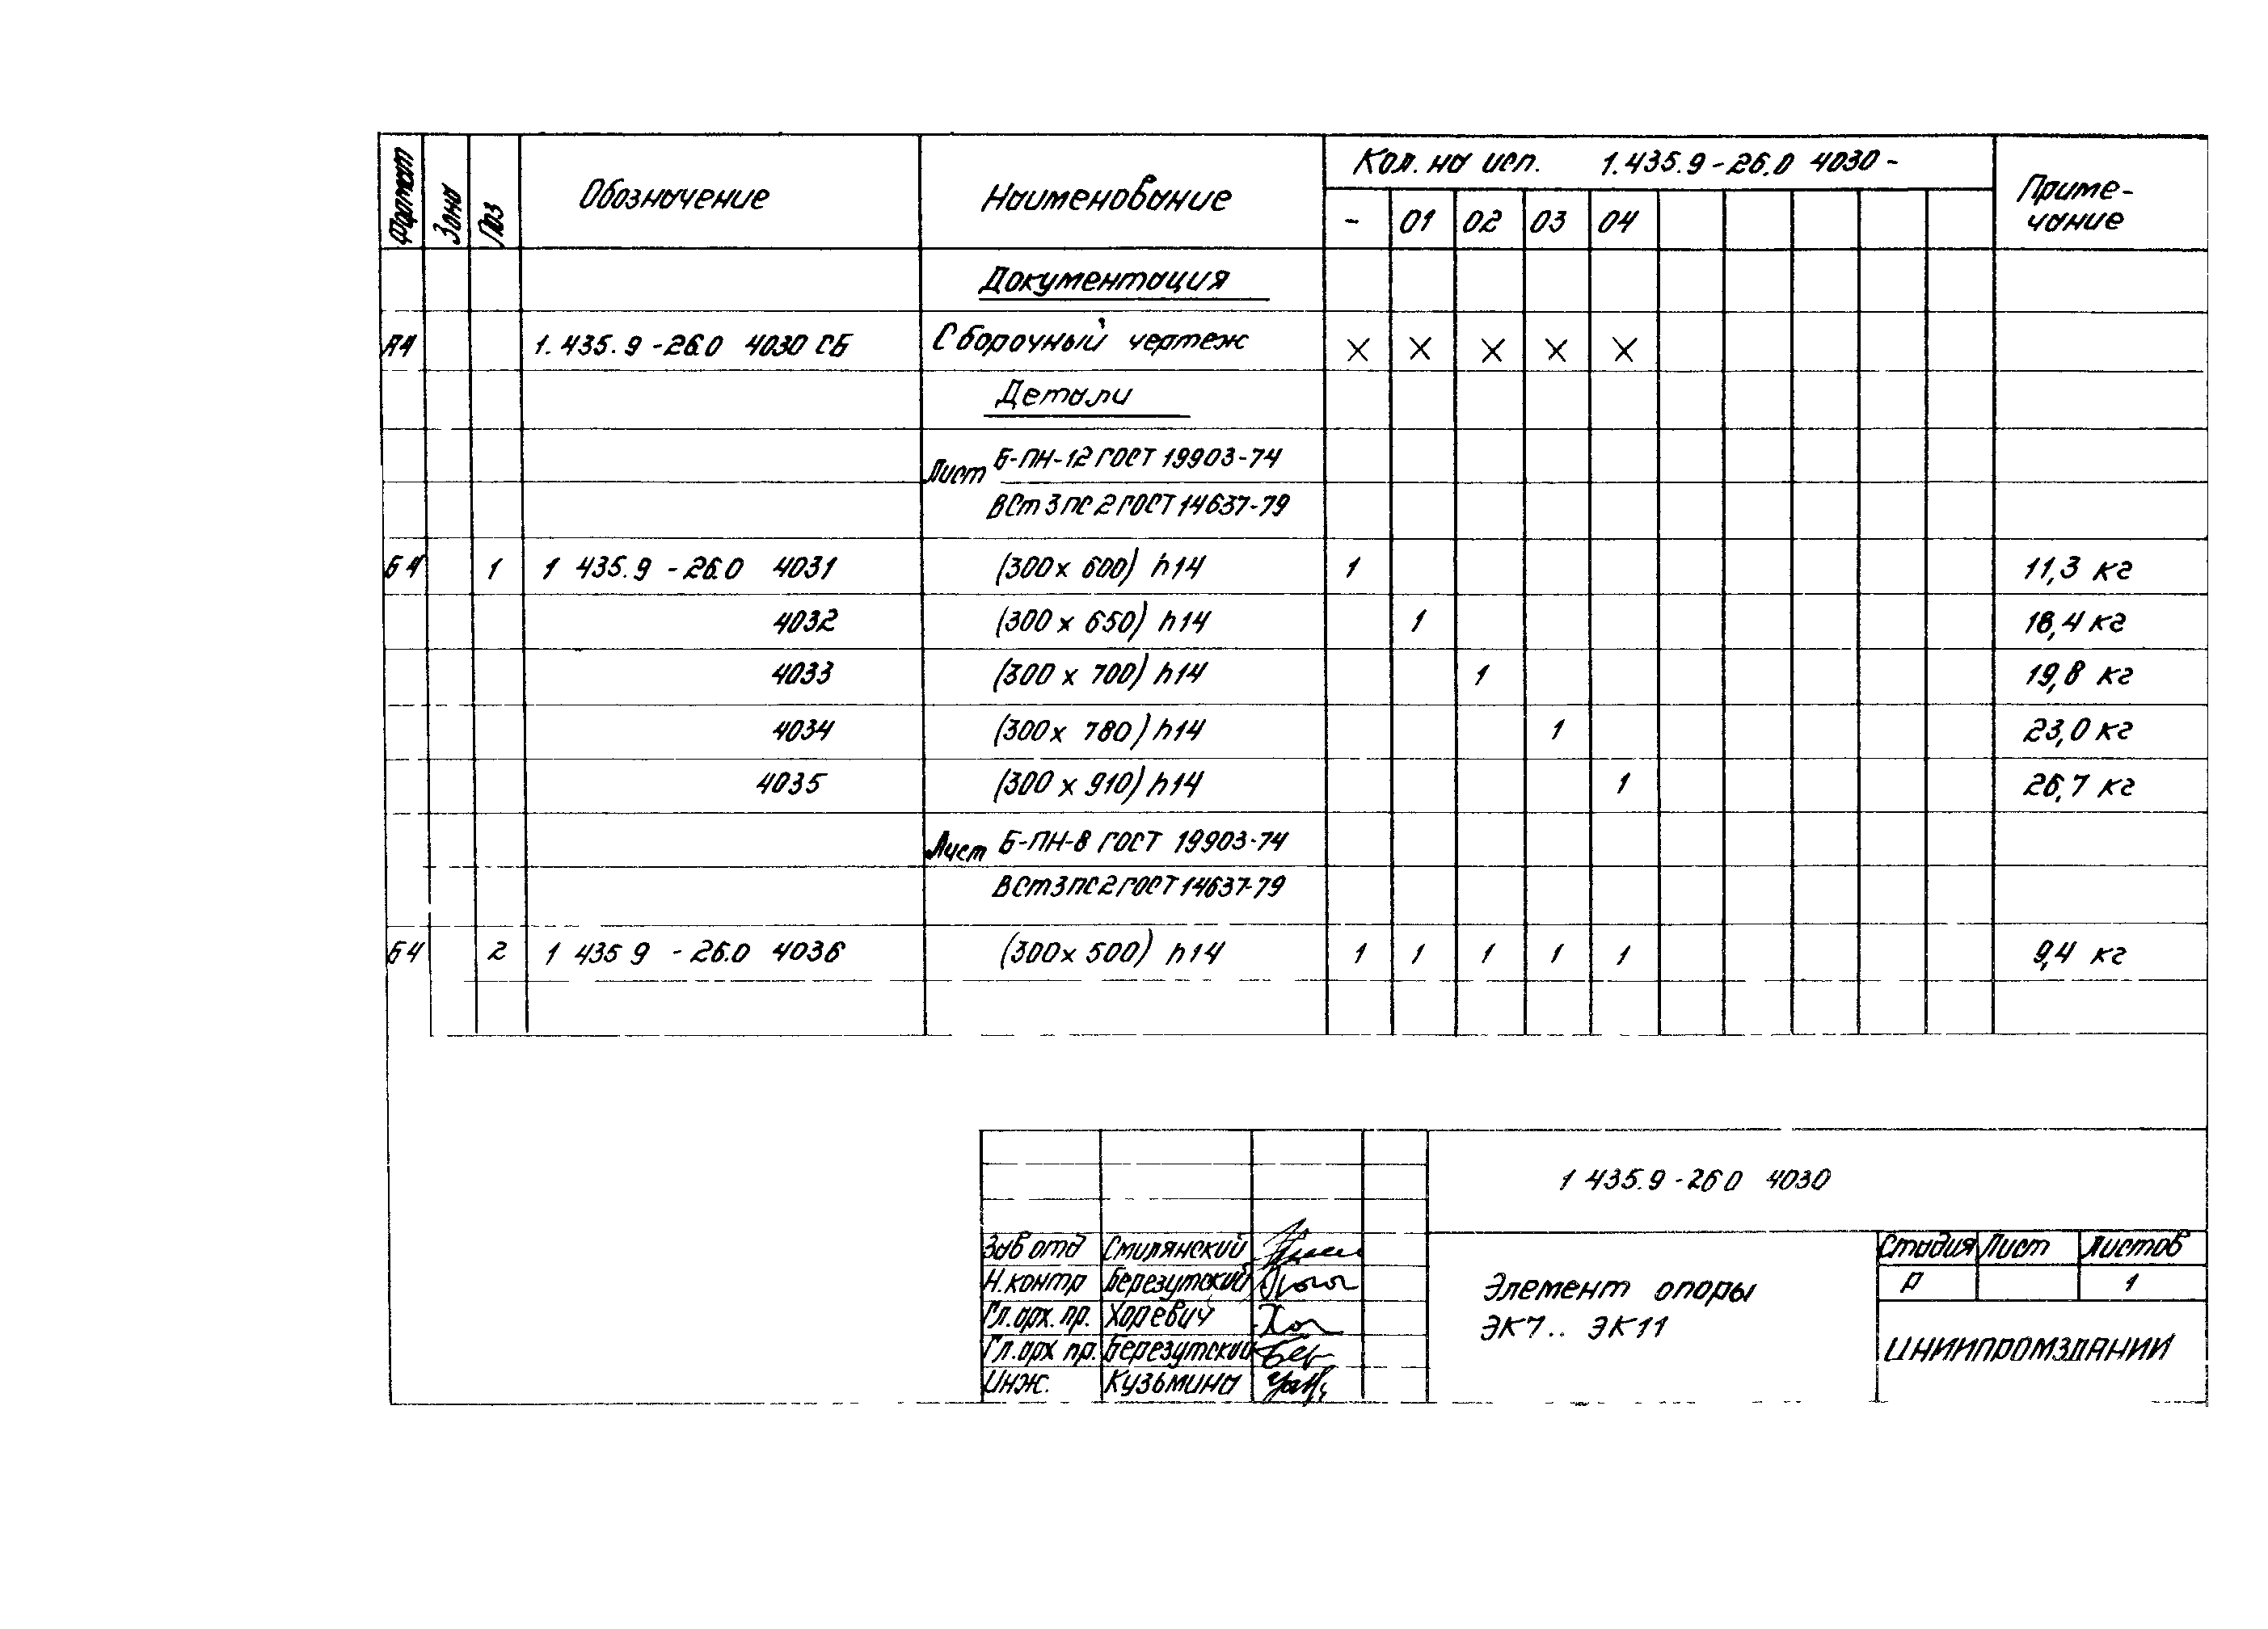 Формат Зона Поз Обозначение Наименование Кол. на исп. 1.435.9-26.0 4030- Приме-
чание
- 01 02 03 04
Документация
А4 1.435.9-26.0 4030 СБ Сборочный чертеж X X X X X
Детали
Лист Б-ПН-12 ГОСТ 19903-74
ВСт3пс2 ГОСТ 14637-79
Б4 1 1 435.9-26.0 4031 (300х600) h14 1 11,3 кг
4032 (300х650) h14 1 18,4 кг
4033 (300х700) h14 1 19,8 кг
4034 (300х780) h14 1 23,0 кг
4035 (300х910) h14 1 26,7 кг
Лист Б-ПН-8 ГОСТ 19903-74
ВСт3пс2 ГОСТ 14637-79
Б4 2 1 435 9-26.0 4036 (300х500) h14 1 1 1 1 1 9,4 кг
1 435.9-26 0 4030
Зав отд Смилянский
Н.контр Березутский
Гл.арх.пр. Хоревич
Гл.арх пр. Березутский
Инж. Кузьмина
Элемент опоры
ЭК7.. ЭК11
Стадия Лист Листов
Р 1
ЦНИИПРОМЗДАНИИ